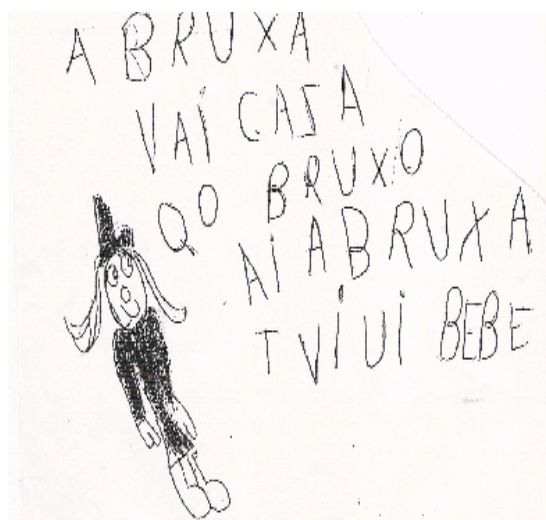 A BRUXA
VAI CASA
QO BRUXO
AI A BRUXA
T VIUI BEBE